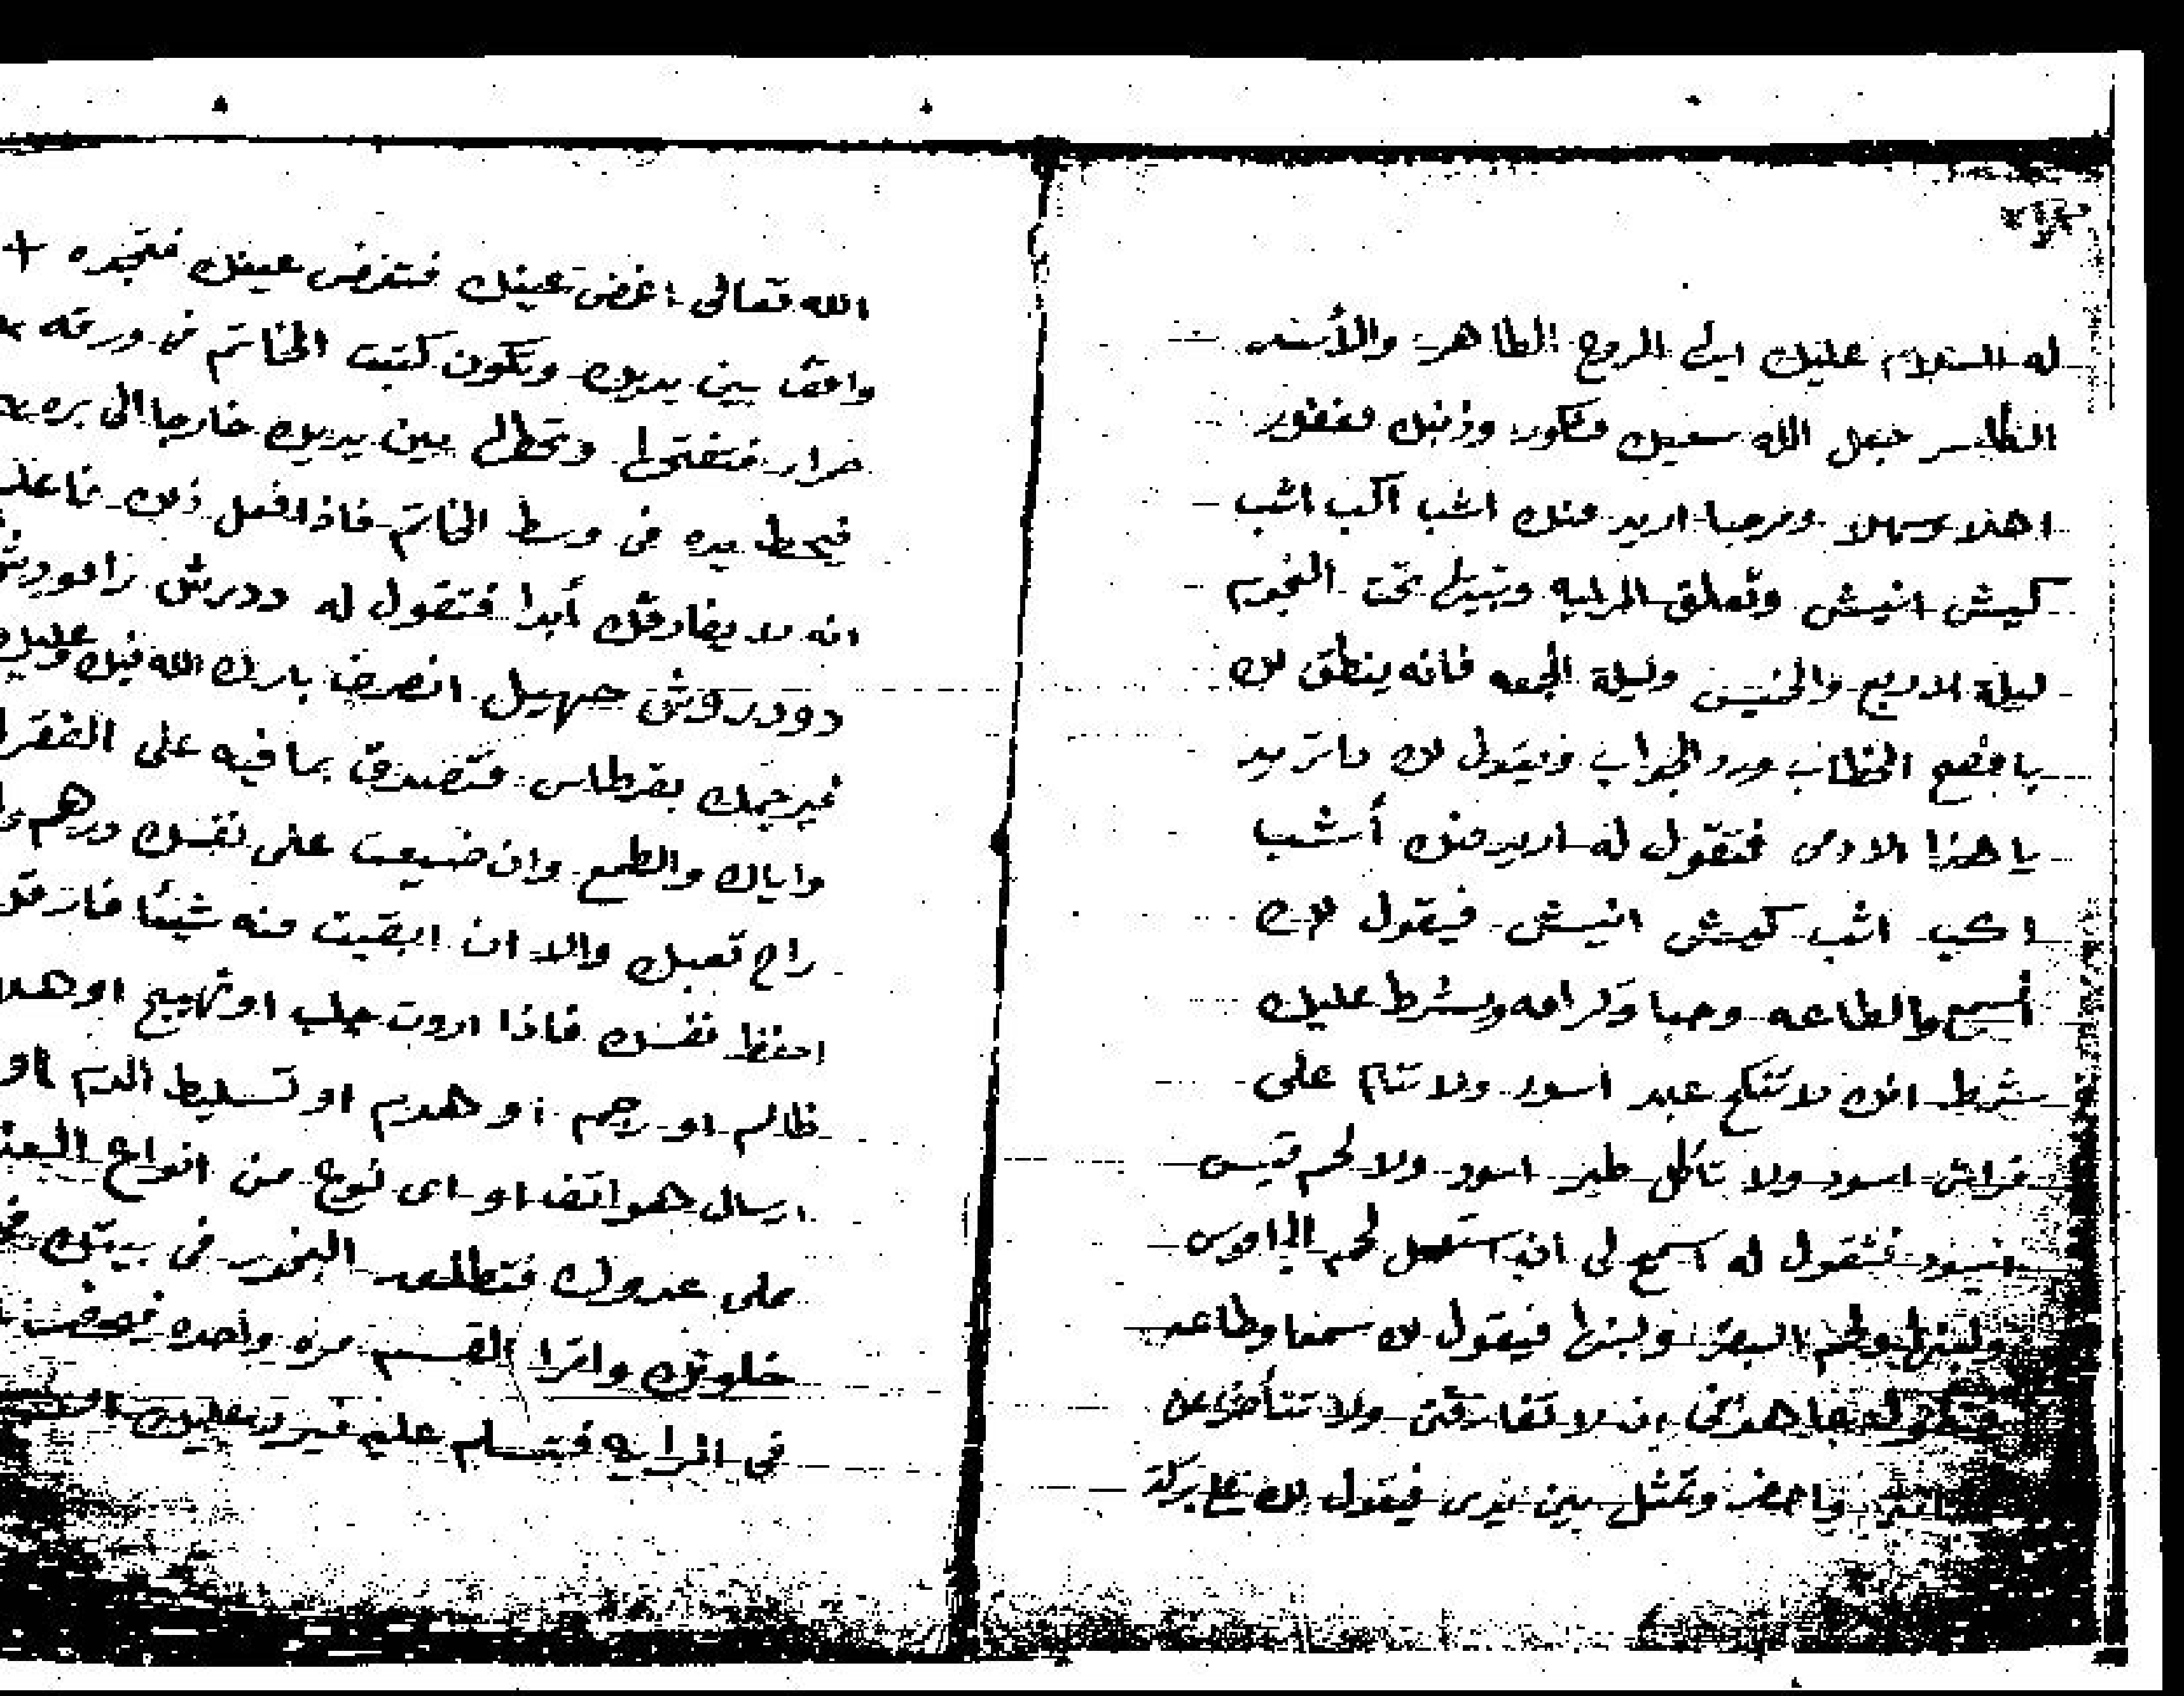 له السلام عليك ايها الروح الطاهر والأسد
الطاهر جعل الله سعيك مشكور وذنبك مغفور
اهلا وسهلا ومرحبا اريد منك اشب اكب اشب
كيش انيش وتعلق المرايه وتبيتها تحت النجوم
ليلة الاربع والخميس وليلة الجمعه فانه ينطق لك
بافصح الخطاب ورد الجواب ويقول لك ما تريد
يا هذا الادمى فتقول له اريد منك أشب
اكب اشب كيش انيش فيقول لك
أسمع والطاعه وحبا وكرامه ويشرط عليك
شرط انك لا تنكح عبد اسود ولا تنام على
فراش اسود ولا تأكل طير اسود ولا لحم تيس
اسود فتقول له اسمح لى ان استعمل لحم الجاموس
ولبنها ولحم البقر ولبنها فيقول لك سمعا وطاعه
عاهدنى ان لا تفارقنى ولا تتأخر عن
واحضر وتمثل بين يدى فيقول لك على بركة
الله تعالى اغمض عينك فتغمض عينك فتجده +
واقف بين يديك وتكون كتبت الخاتم فى ورقه
حرار فتفتحها وتحطها بين يديك خارجا الى بره
فيحط يده فى وسط الخاتم فاذا فعل ذلك فاعلم
انه لا يفارقك أبدا فتقول له دورش
دودروش جهيل انصرف بارك الله فيك وعليك
بقرطاس فتصدق بما فيه على الفقرا
واياك والطمع وان ضيعت على نفسك درهم
راح تعبك والا ان ابقيت منه شيئا فارقك
احفظ نفسك فاذا اردت جلب او تهييج او
ظالم او رجم او هدم او تسليط الدم او
ارسال هواتف او اى نوع من انواع
على عدوك فتطلق البخور فى بيتك
خلوتك واقرا القسم مره واحده
فى المرايه فتسلم عليه فيرد عليك